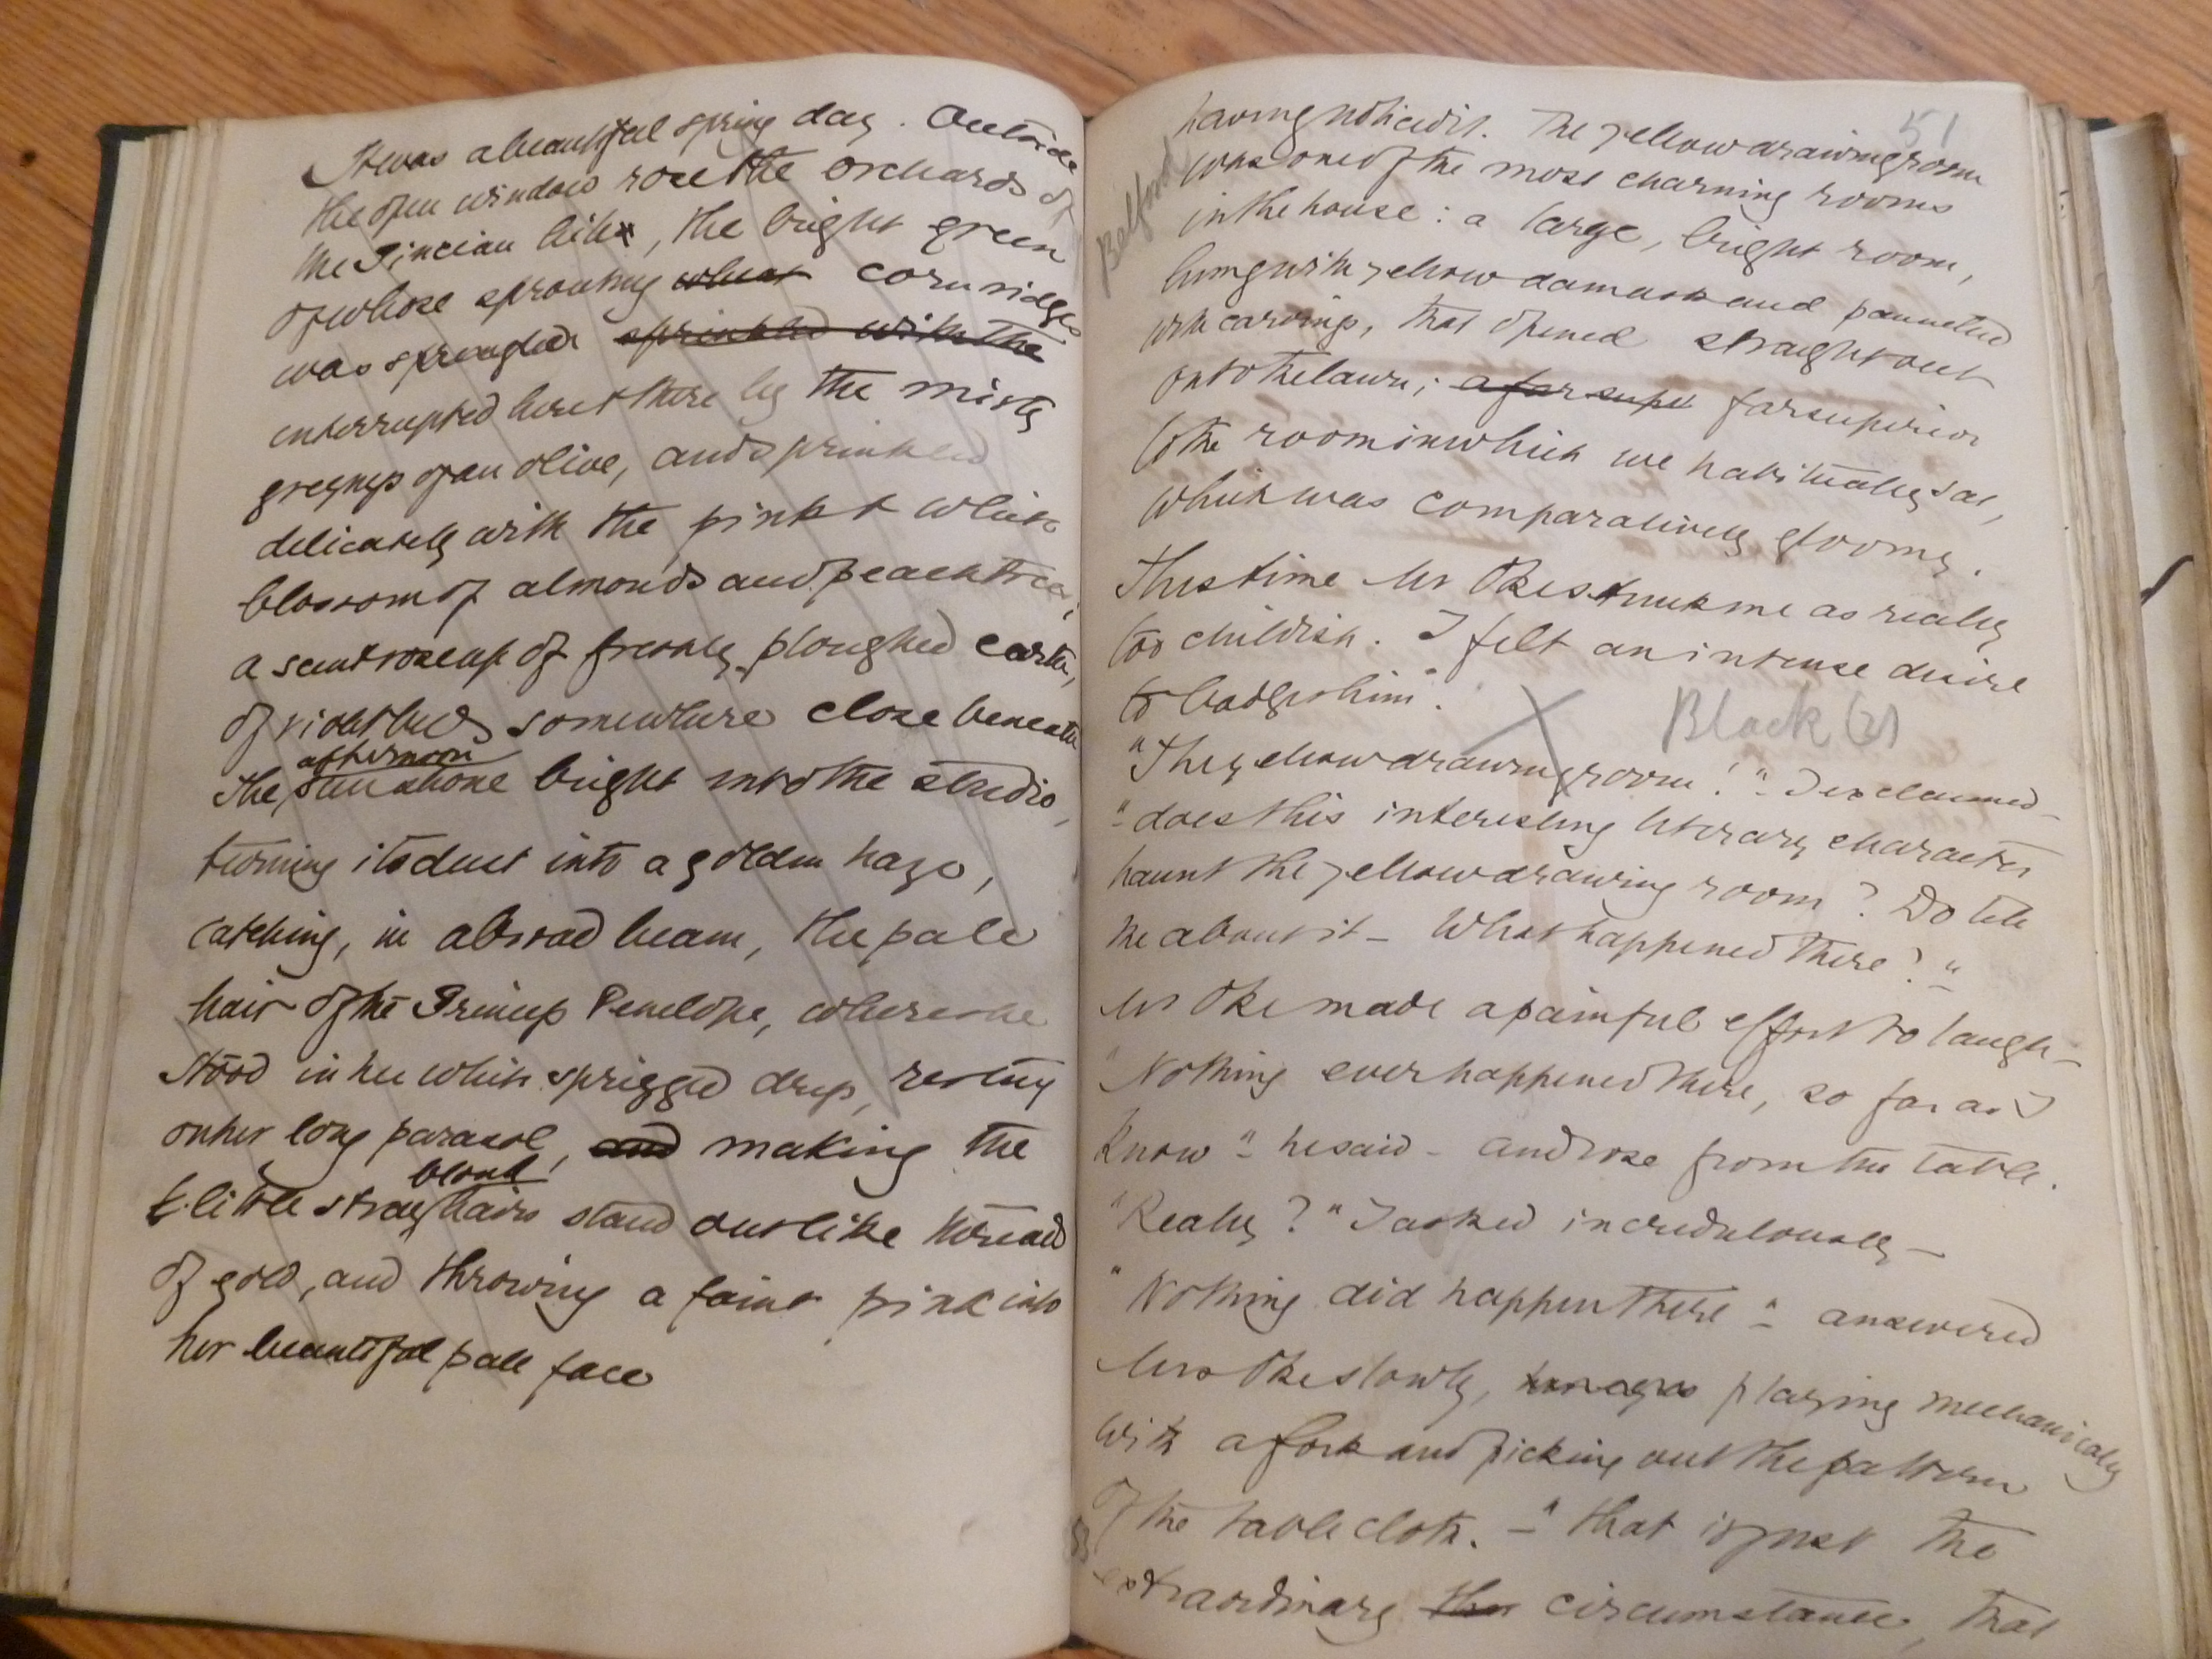 It was a beautiful spring day. Outside
the open window rose the orchards of
the Pincian hill, the bright green
of whose sprouting wheat corn ridges
was spangled sprinkled with the
interrupted here & there by the misty
greyness of an olive, and sprinkled
delicately with the pink & white
blossom of almonds and peachtrees;
a scent rose up of freshly ploughed earth,
of violet beds somewhere close beneath
afternoon
The sun shone bright into the studio,
turning its dust into a golden haze,
catching, in a broad beam, the pale
hair of the Princess Penelope, where she
stood in her white sprigged dress, resting
on her long parasol, and making the
blond
little stray hairs stand out like threads
of gold, and throwing a faint pink into
her beautiful pale face
51
Belford
having noticed it. The yellow drawing room
was one of the most charming rooms
in the house: a large, bright room,
hung with yellow damask and pannelled
with carvings, that opened straight out
on to the lawn; a far super far superior
to the room in which we habitually sat,
which was comparatively gloomy.
This time Mr Oke struck me as really
too childish. I felt an intense desire
to badger him.
Black (2)
"The yellow drawing room!" I exclaimed_
"does this interesting literary character
haunt the yellow drawing room? Do tell
me about it – What happened there?"
Mr Oke made a painful effort to laugh –
"Nothing ever happened there, so far as I
know" he said – and rose from the table.
"Really?" I asked incredulously –
"Nothing did happen there" answered
Mrs Oke slowly, playing mechanically
with a fork and picking out the pattern
of the table cloth. – "that is just the
extraordinary circumstance, that